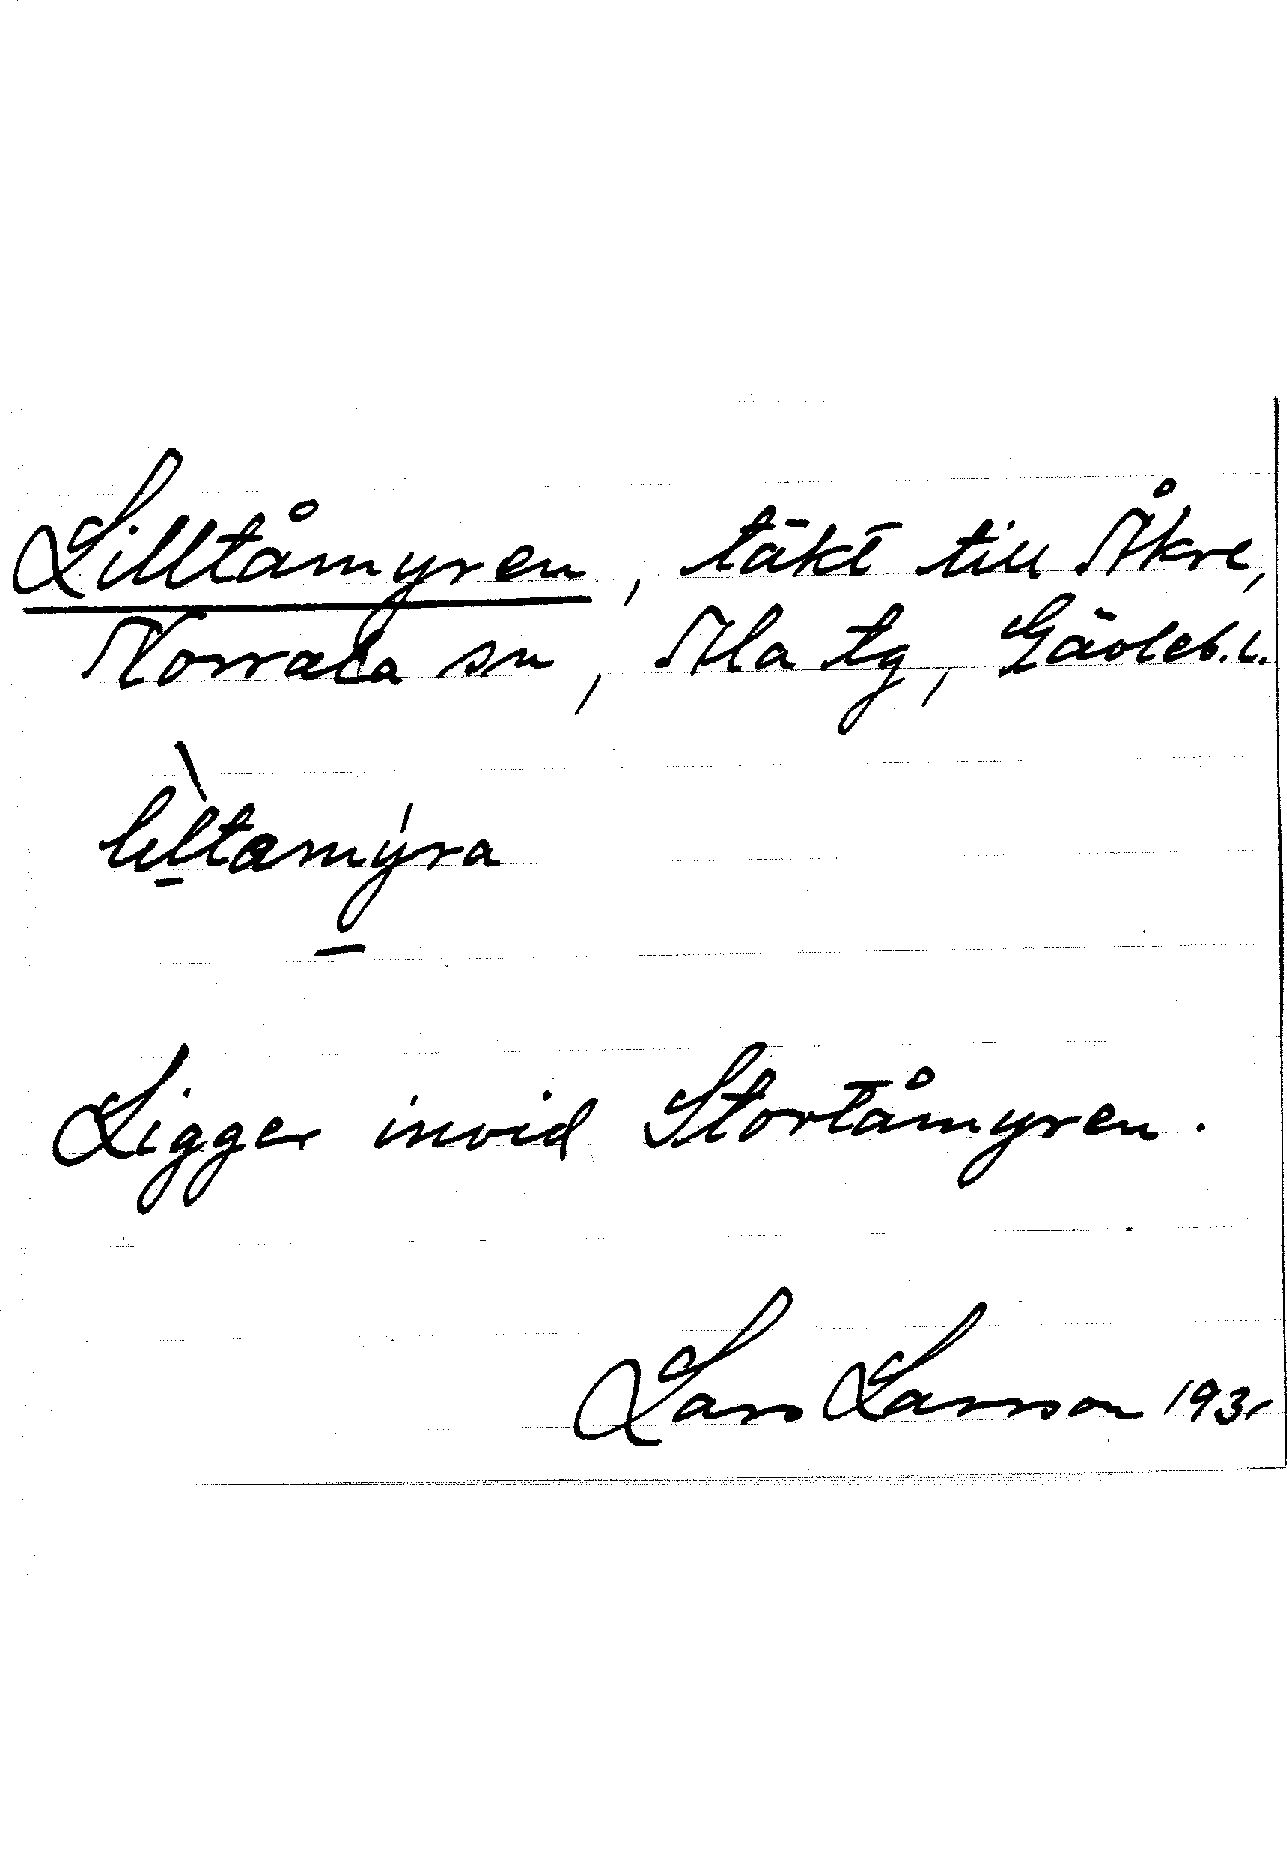 Lilltåmyren, täkt till Åkre,
Norrala sn, Ala tg, Gävleb. l.
Ligger invid Stortåmyren.
Lars Larsson 1931